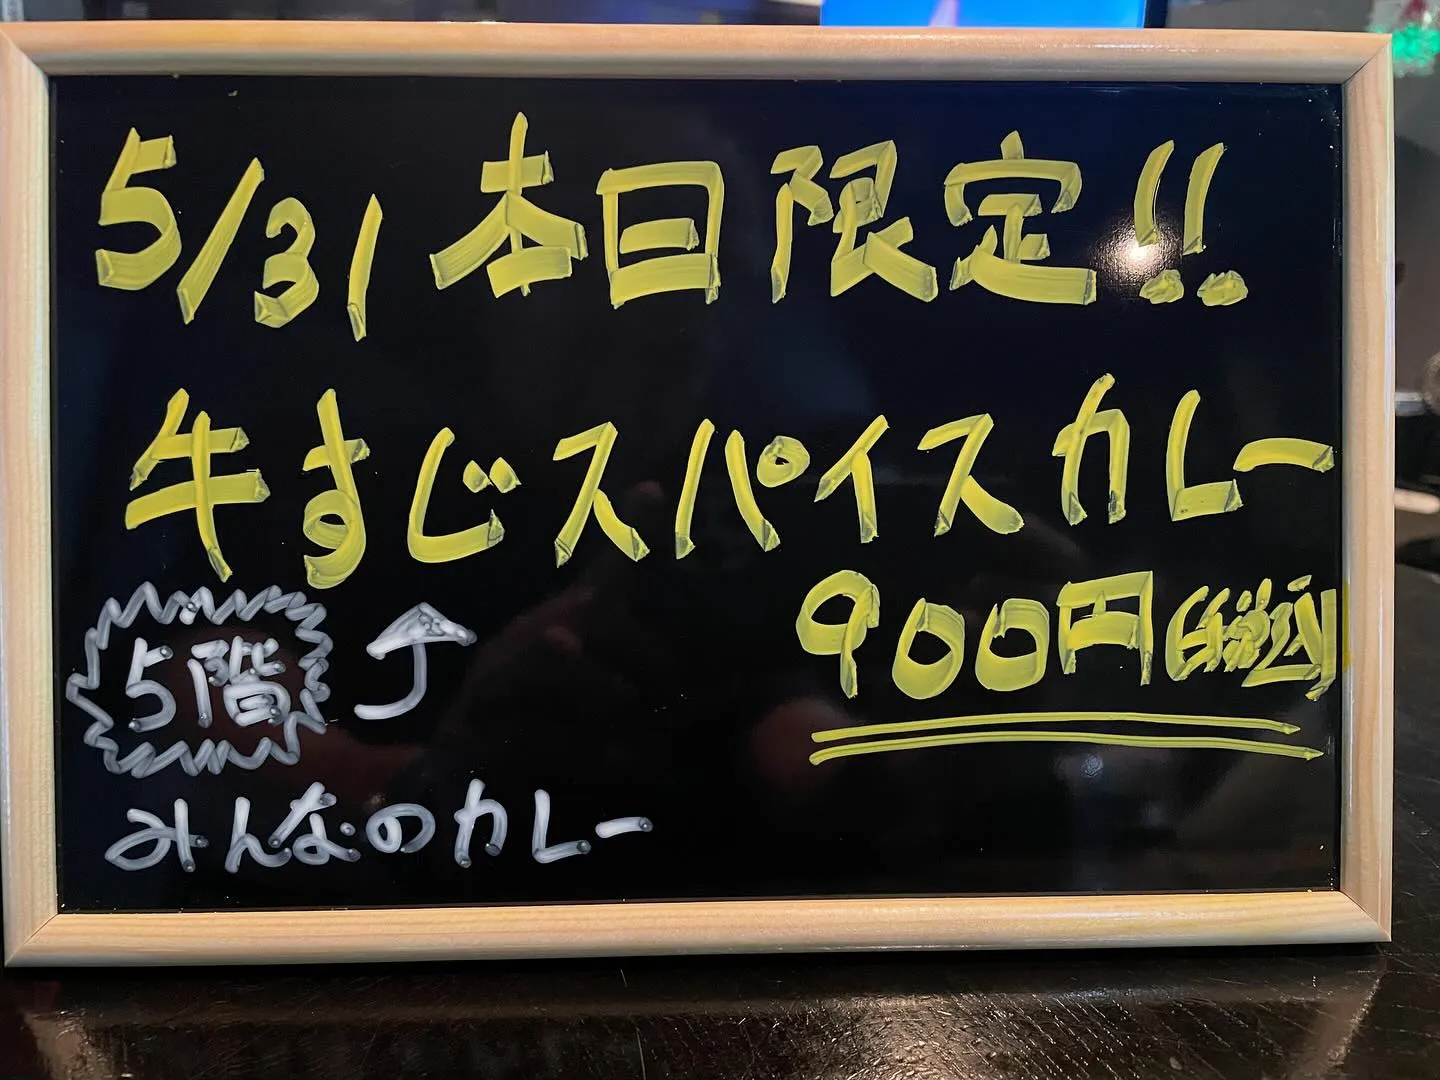 5/31 本日限定!!
牛すじスパイスカレー
900円(税込)
5階
みんなのカレー